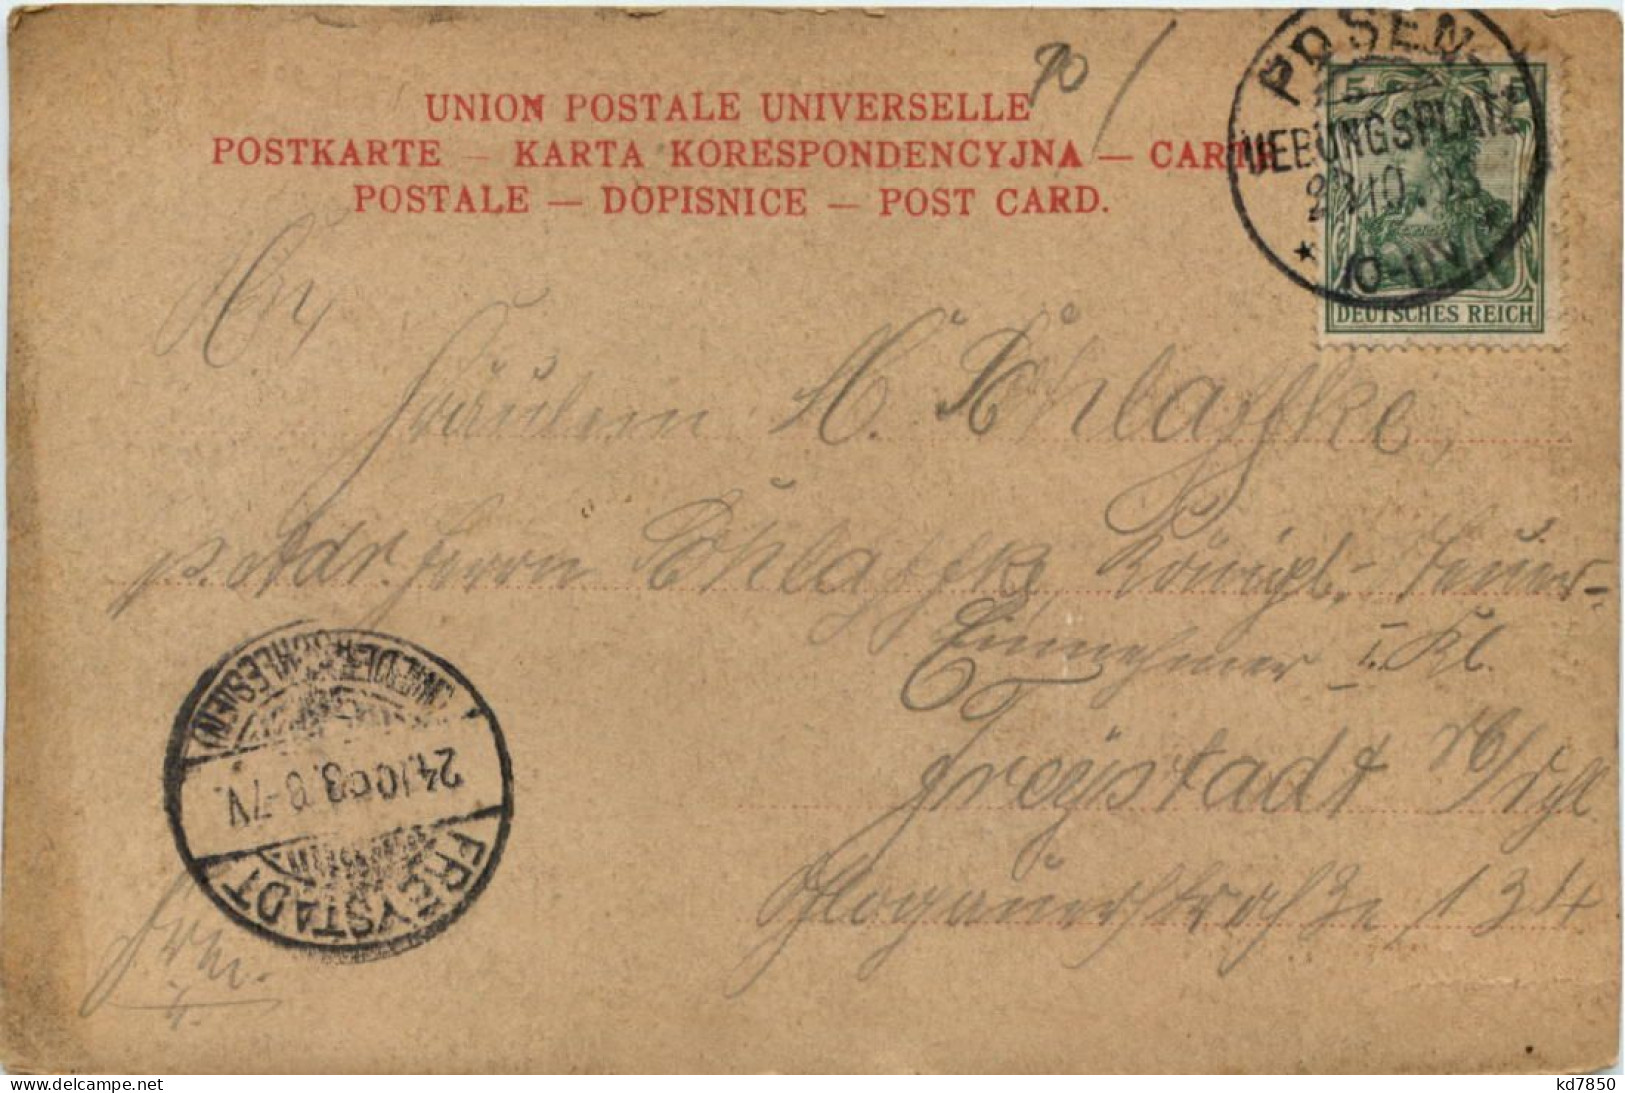 70
UNION POSTALE UNIVERSELLE
POSTKARTE — KARTA KORESPONDENCYJNA — CARTE
POSTALE — DOPISNICE — POST CARD.
POSEN
UEBUNGSPLATZ
23.10.03
10-11V
5 5
DEUTSCHES REICH
An
Fräulein H. Schlaffke,
p. Adr. Herrn Schlaffke Königl. Steuer-
Einnehmer I. Kl.
Freystadt N/Schl
Glogauerstraße 134
(NIEDERSCHLESIEN)
24.10.03. 6-7V.
FREYSTADT
Frei.
kd7850